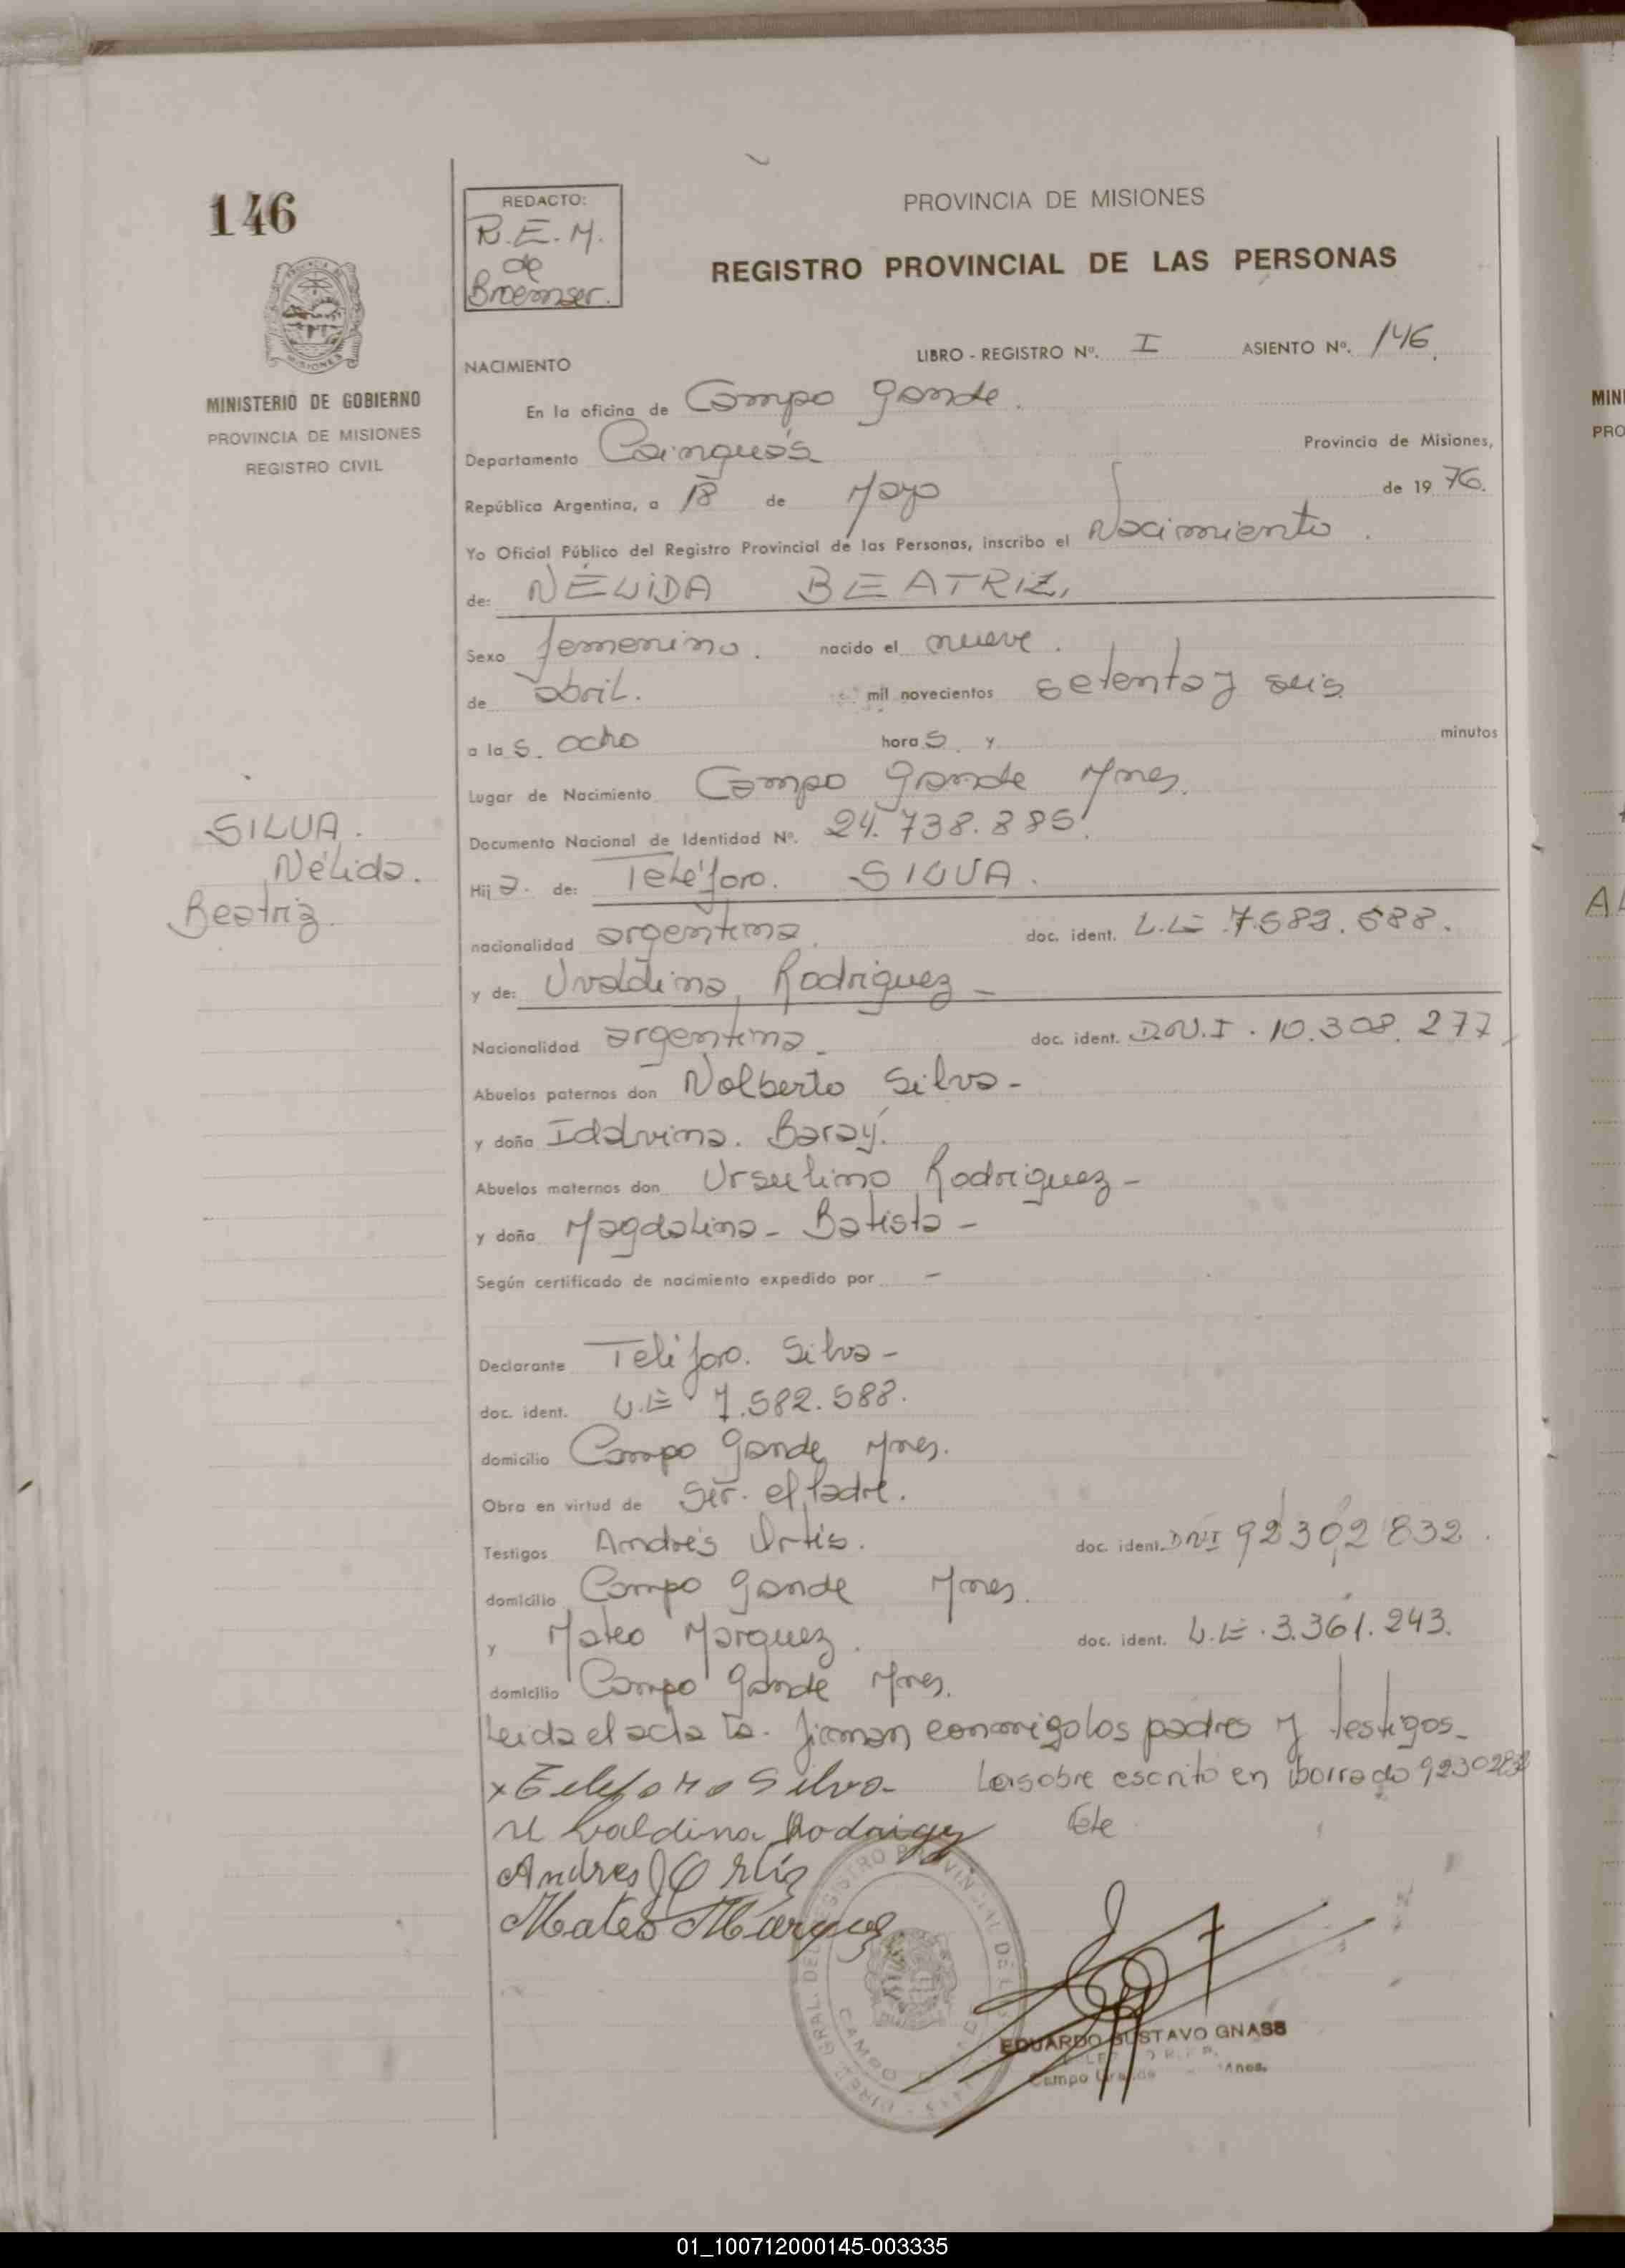 146
REDACTO:
R.E.M.
de
Broemser.
PROVINCIA DE MISIONES
REGISTRO PROVINCIAL DE LAS PERSONAS
MINISTERIO DE GOBIERNO
PROVINCIA DE MISIONES
REGISTRO CIVIL
NACIMIENTO
LIBRO - REGISTRO Nº. I ASIENTO Nº. 146.
En la oficina de Campo Gande.
Departamento Cainguás Provincia de Misiones,
República Argentina, a 18 de Mayo de 19 76.
Yo Oficial Público del Registro Provincial de las Personas, inscribo el Nacimiento.
de: NÉLIDA BEATRIZ,
Sexo femenino. nacido el nueve.
de abril. mil novecientos setenta y seis
a la s. ocho hora s y minutos
Lugar de Nacimiento Campo Grande Mnes.
Documento Nacional de Identidad Nº. 24.738.885.
SILVA.
Nélida.
Beatriz
Hij a. de: Teléforo. SILVA.
nacionalidad argentina. doc. ident. L.E 7.582.588.
y de: Uvaldina, Rodriguez -
Nacionalidad argentina. doc. ident. D.N.I. 10.308.277
Abuelos paternos don Nolberto Silva -
y doña Idalvina. Baray.
Abuelos maternos don Ursulino Rodriguez -
y doña Magdalina - Batista -
Según certificado de nacimiento expedido por -
Declarante Teléforo. Silva -
doc. ident. L.E 7.582.588.
domicilio Campo Gande Mnes.
Obra en virtud de Ser. el Padre.
Testigos Andrés Ortis. doc. ident. DNI 92302832.
domicilio Campo Gande Mnes.
y Mateo Marquez. doc. ident. L.E. 3.361.243.
domicilio Campo Gande Mnes.
Leida el acta la. firman conmigo los padres y testigos.
x Teleforo Silva Lo sobre escrito en borrado 92302832
Uvaldina Rodrigez Vale
Andres Ortiz
Mateo Marquez
EDUARDO GUSTAVO GNASS
Campo Grande Mnes.
MIN
PRO
01_100712000145-003335